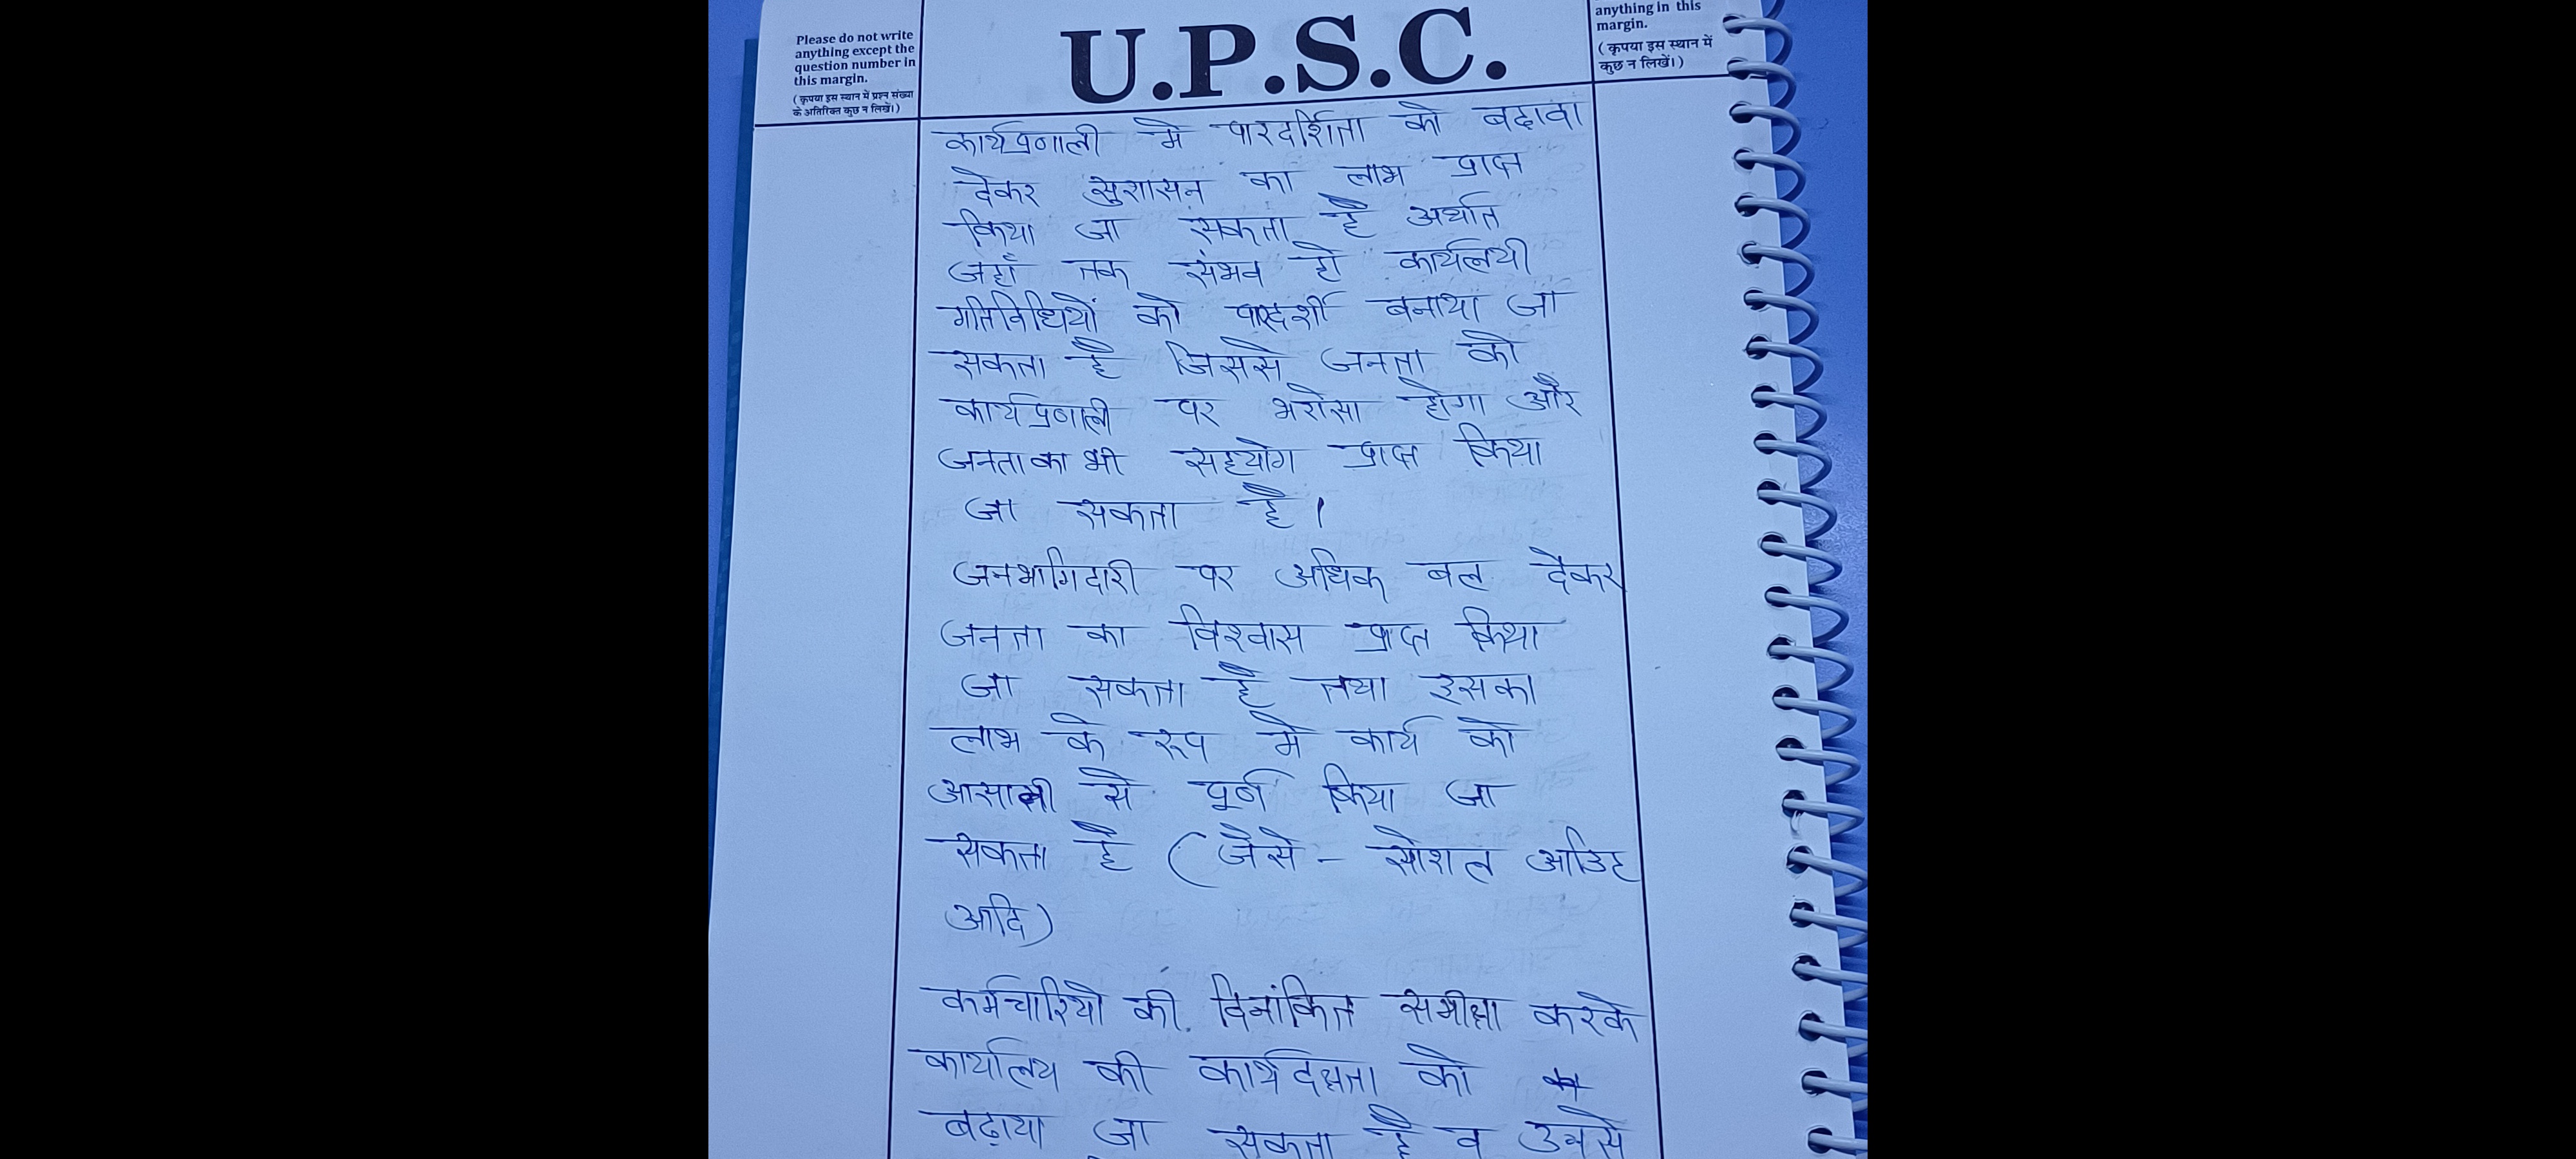 Please do not write
anything except the
question number in
this margin.
(कृपया इस स्थान में प्रश्न संख्या
के अतिरिक्त कुछ न लिखें।)
U.P.S.C.
anything in this
margin.
(कृपया इस स्थान में
कुछ न लिखें।)
कार्यप्रणाली मे पारदर्शिता को बढावा
देकर सुशासन का लाभ प्राप्त
किया जा सकता है अर्थात
जहाँ तक संभव हो कार्यलयी
गतिविधियों को पारदर्शी बनाया जा
सकता है जिससे जनता को
कार्यप्रणाली पर भरोसा होगा और
जनता का भी सहयोग प्राप्त किया
जा सकता है।
जनभागिदारी पर अधिक बल देकर
जनता का विश्वास प्राप्त किया
जा सकता है तथा इसका
लाभ के रूप मे कार्य को
आसानी से पूर्ण किया जा
सकता है (जैसे - सोशल आडिट
आदि)
कर्मचारियो की दिनांकित समीक्षा करके
कार्यालय की कार्यदक्षता को
बढ़ाया जा सकता है व उनसे